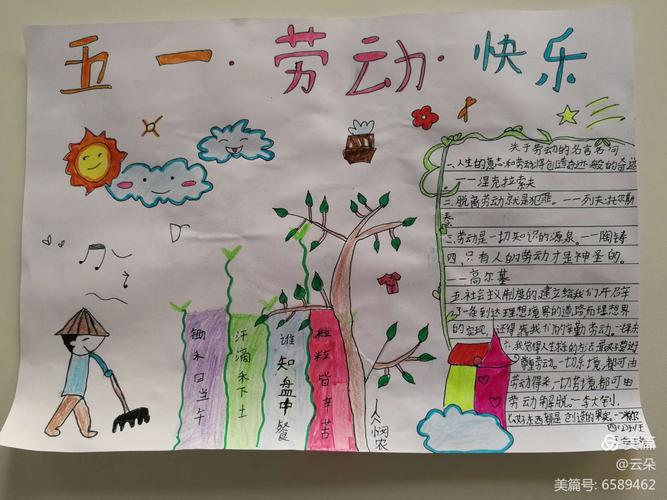 五一·劳动·快乐
锄禾日当午
汗滴禾下土
谁知盘中餐
粒粒皆辛苦
人悯农
关于劳动的名言名句
一、人生的意志和劳动将创造奇迹般的奇迹
——涅克拉索夫
二、脱离劳动就是犯罪。——列夫·托尔斯
泰
三、劳动是一切知识的源泉。——陶铸
四、只有人的劳动才是神圣的。
——高尔基
五、社会主义制度的建立给我们开辟
了一条到达理想境界的道路而理想境界
的实现，还得靠我们的辛勤劳动。
劳动。一切乐境，都可由
劳动得来，一切苦境，都可由
劳动解脱。——李大钊
美篇
@云朵
美篇号: 6589462